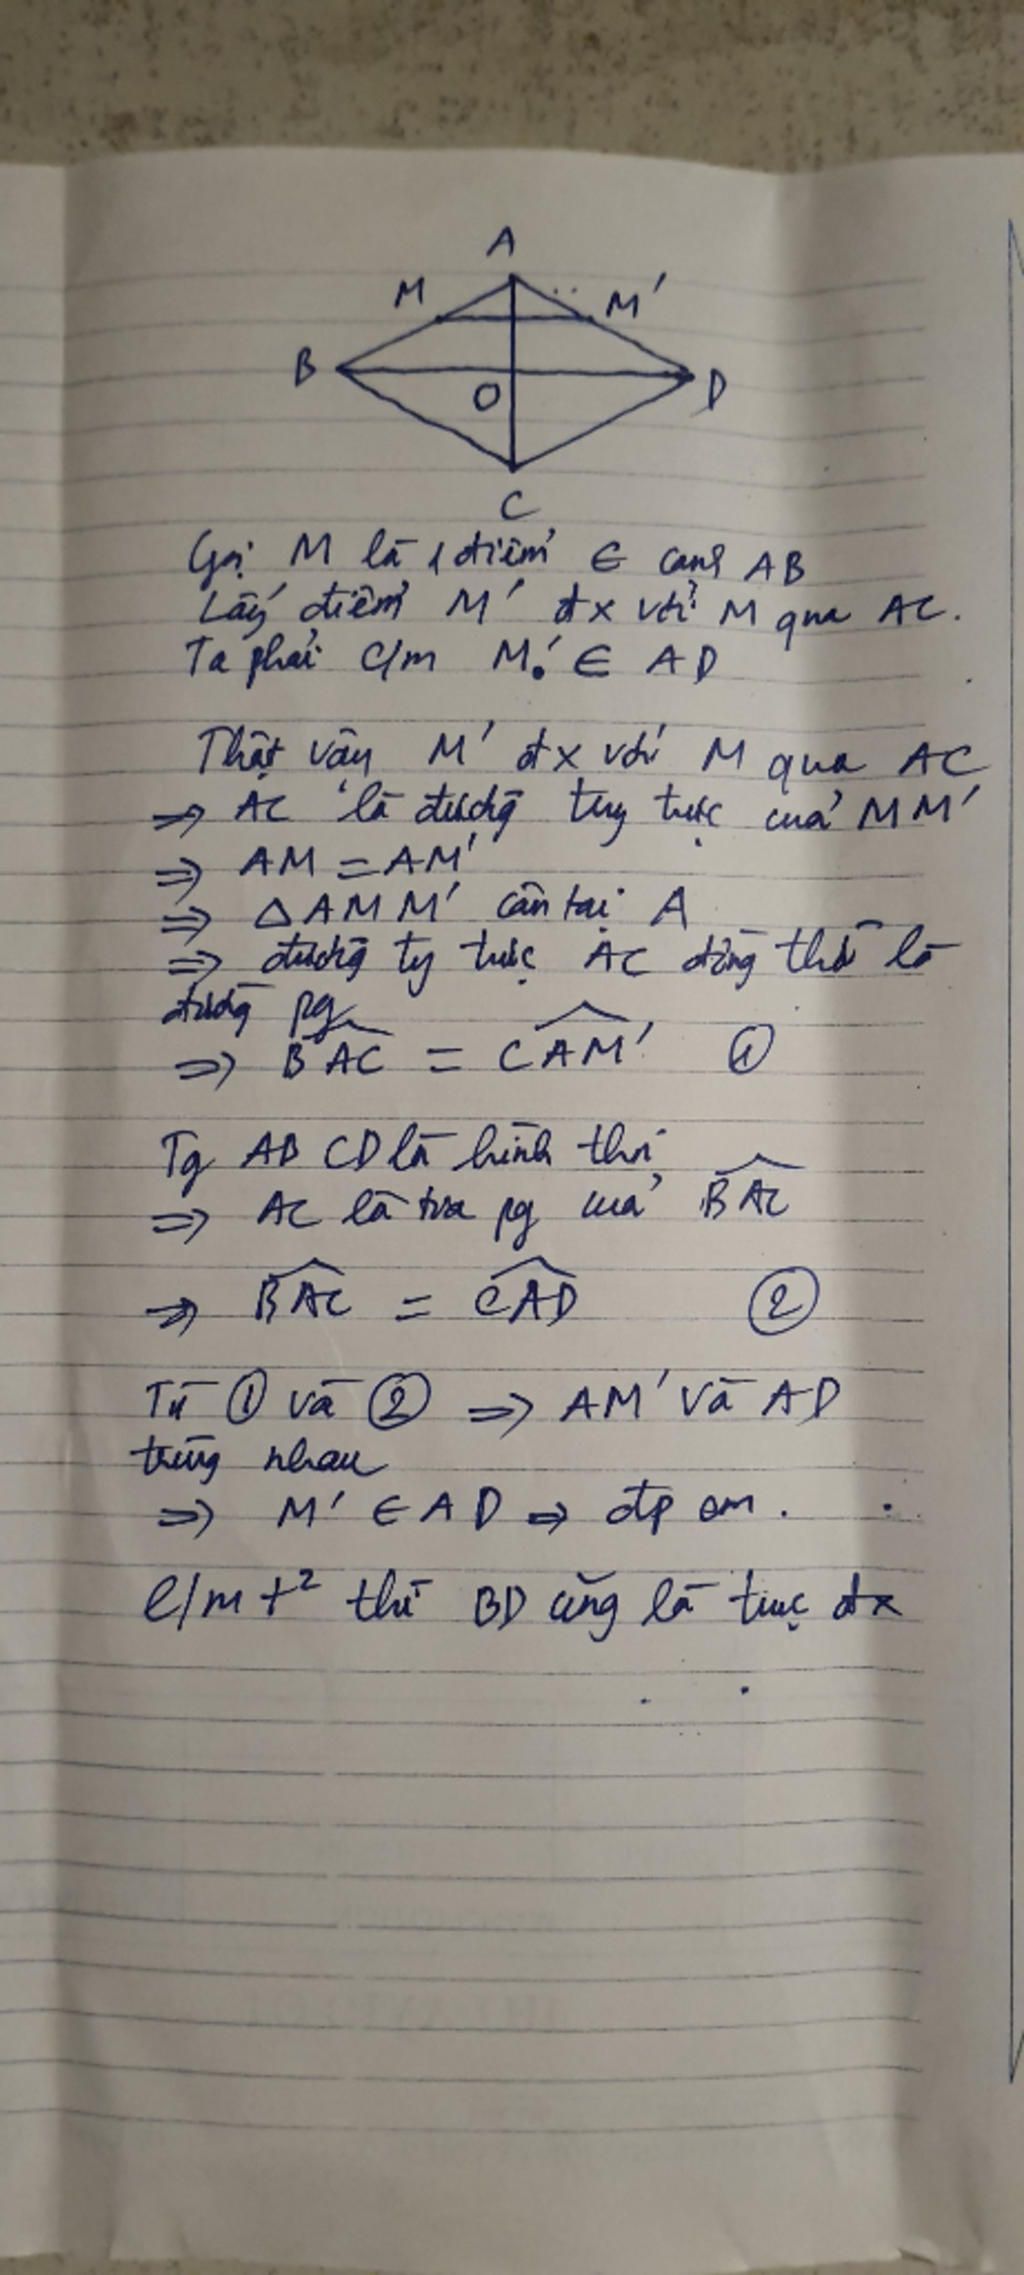 A
M
M'
B
O
D
C
Gọi M là 1 điểm ∈ cạnh AB
Lấy điểm M' đx với M qua AC.
Ta phải c/m M' ∈ AD
Thật vậy M' đx với M qua AC
⇒ AC là đường trg trực của MM'
⇒ AM = AM'
⇒ △AMM' cân tại A
⇒ đường tg trực AC đồng thời là
đường pg
⇒ BAC = CAM' ①
Tg ABCD là hình thoi
⇒ AC là tia pg của BAC
⇒ BAC = CAD ②
Từ ① và ② ⇒ AM' và AD
trùng nhau
⇒ M' ∈ AD ⇒ đp cm.
C/m t² thì BD cũng là trục đx